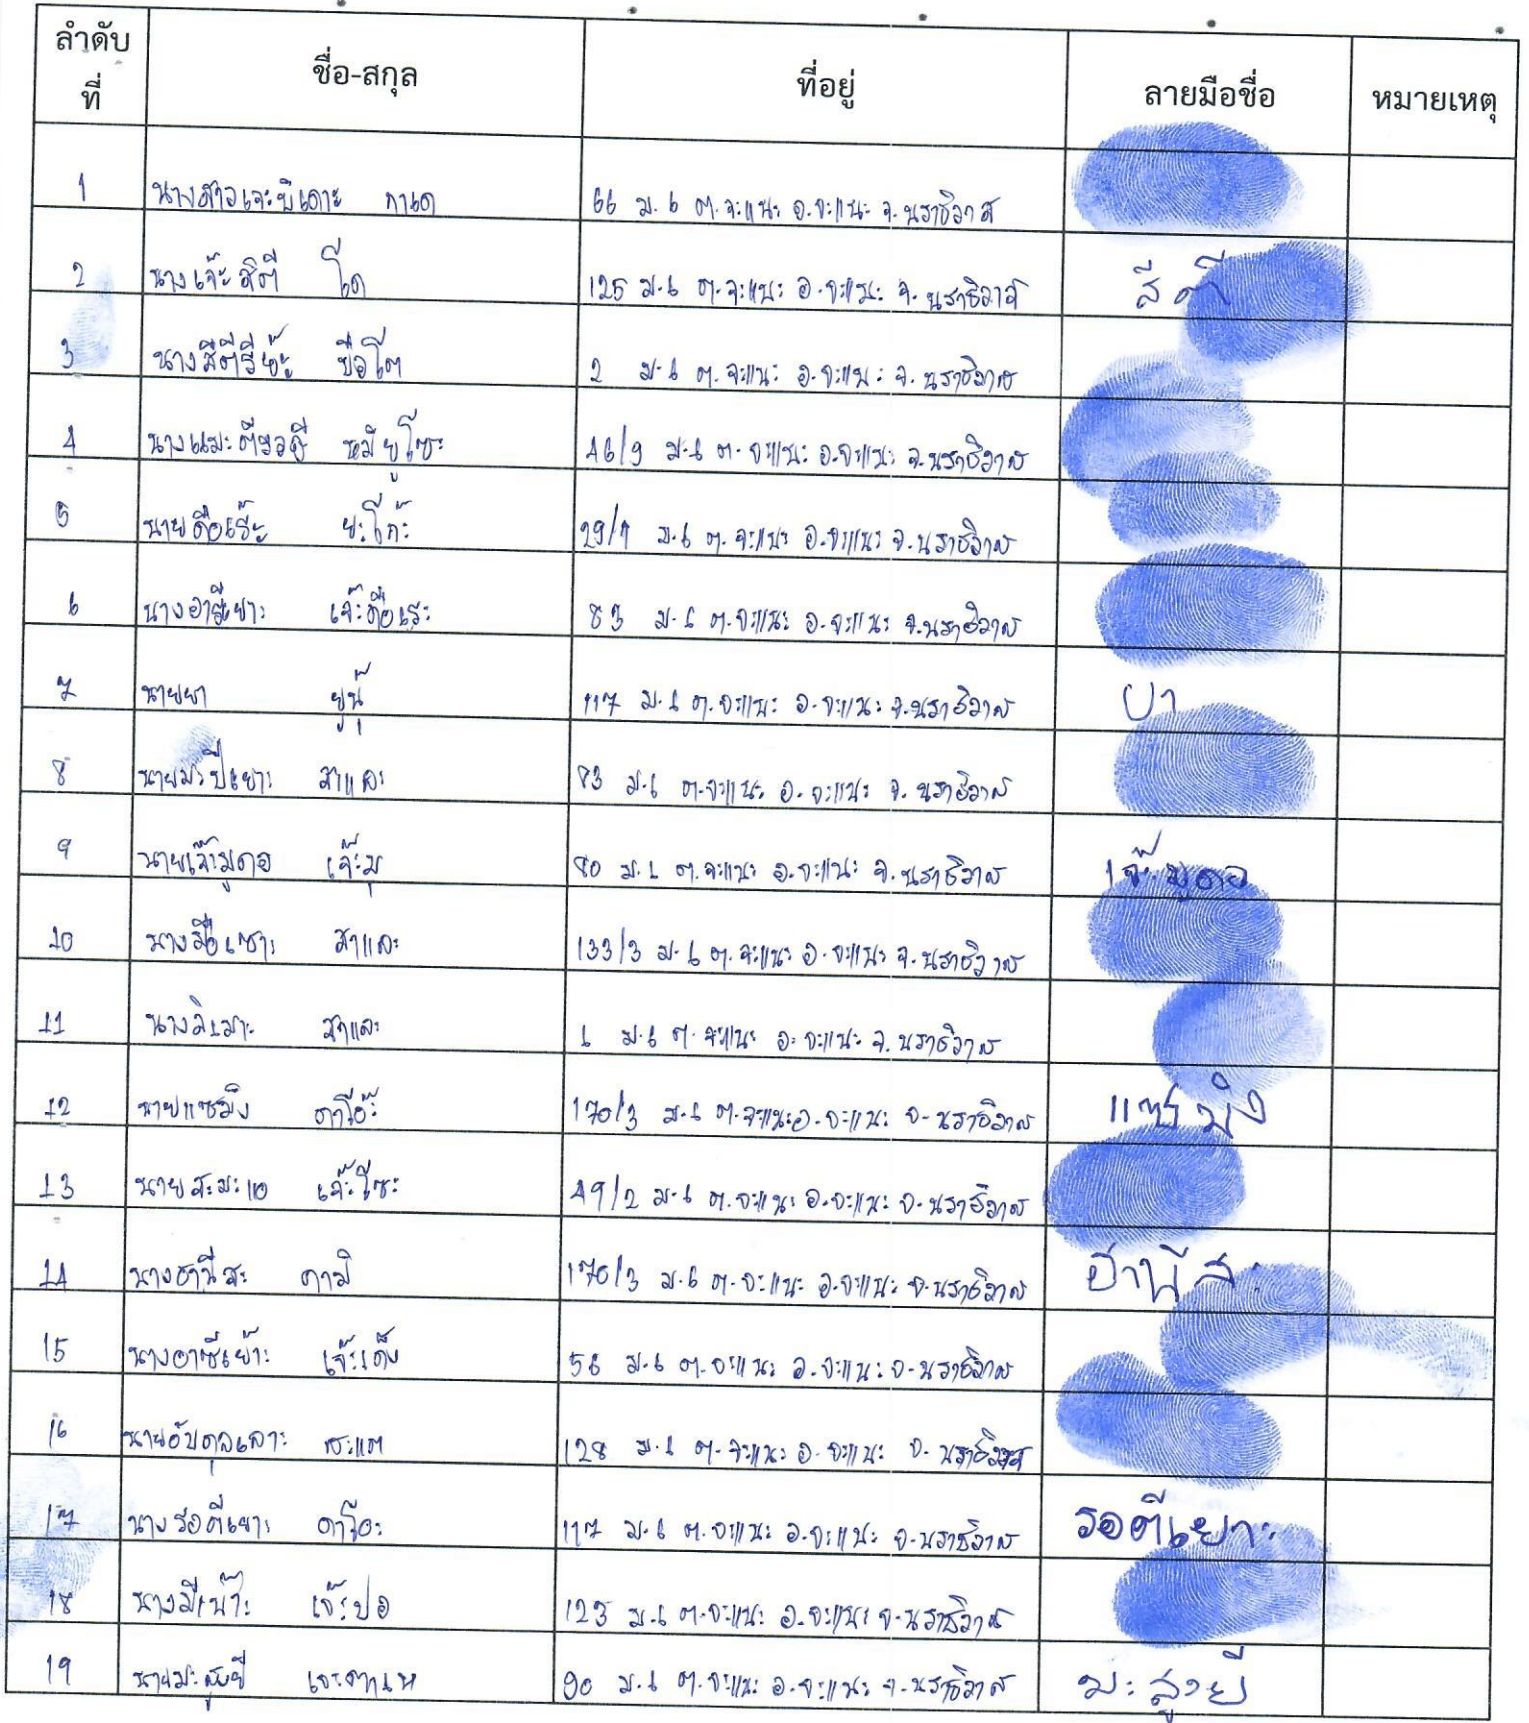 ลำดับที่ ชื่อ-สกุล ที่อยู่ ลายมือชื่อ หมายเหตุ
1 นางสาวเจะบีเดาะ กาเด 66 ม.6 ต.จะแนะ อ.จะแนะ จ.นราธิวาส
2 นางเจ๊ะสิตี โด 125 ม.6 ต.จะแนะ อ.จะแนะ จ.นราธิวาส สีตี
3 นางสีตีรีย๊ะ ยือโต 2 ม.6 ต.จะแนะ อ.จะแนะ จ.นราธิวาส
4 นางแมะตีบอซู 46/9 ม.6 ต.จะแนะ อ.จะแนะ จ.นราธิวาส
5 นายดือเร๊ะ ยะโก๊ะ 29/1 ม.6 ต.จะแนะ อ.จะแนะ จ.นราธิวาส
6 นางอารีเยาะ เจ๊ะดือเระ 83 ม.6 ต.จะแนะ อ.จะแนะ จ.นราธิวาส
7 นายยา ยูนุ๊ 117 ม.6 ต.จะแนะ อ.จะแนะ จ.นราธิวาส ยา
8 นายมะปีเยาะ สาและ 83 ม.6 ต.จะแนะ อ.จะแนะ จ.นราธิวาส
9 นายเจ๊ะมูดอ เจ๊ะมุ 80 ม.6 ต.จะแนะ อ.จะแนะ จ.นราธิวาส เจ๊ะมูดอ
10 นางสือเซาะ สาและ 133/3 ม.6 ต.จะแนะ อ.จะแนะ จ.นราธิวาส
11 นางมิเมาะ สาและ 6 ม.6 ต.จะแนะ อ.จะแนะ จ.นราธิวาส
12 นายแซมิง ดาโอ๊ะ 170/3 ม.6 ต.จะแนะ อ.จะแนะ จ.นราธิวาส แซมิง
13 นายสะมะแอ เจ๊ะโซะ 49/2 ม.6 ต.จะแนะ อ.จะแนะ จ.นราธิวาส
14 นางฮานีสะ ดามิ 170/3 ม.6 ต.จะแนะ อ.จะแนะ จ.นราธิวาส ฮานีสะ
15 นางอาซีเย๊าะ เจ๊ะเด็ง 56 ม.6 ต.จะแนะ อ.จะแนะ จ.นราธิวาส
16 นายอับดุลเลาะ สะแต 128 ม.6 ต.จะแนะ อ.จะแนะ จ.นราธิวาส
17 นางรอตีเยาะ ดาโอะ 117 ม.6 ต.จะแนะ อ.จะแนะ จ.นราธิวาส รอตีเยาะ
18 นางมีเน๊าะ เจ๊ะปอ 123 ม.6 ต.จะแนะ อ.จะแนะ จ.นราธิวาส
19 นายมะสูยี 90 ม.6 ต.จะแนะ อ.จะแนะ จ.นราธิวาส มะสูงยี